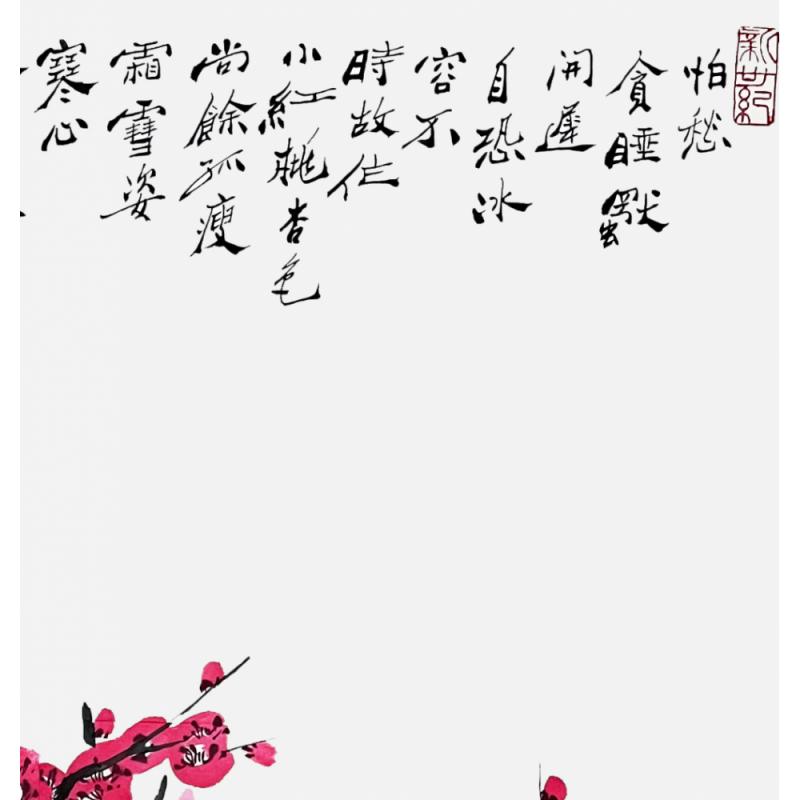 新世紀
怕愁
貪睡獨
開遲
自恐冰
容不
時故作
小紅桃杏色
尚餘孤瘦
霜雪姿
寒心